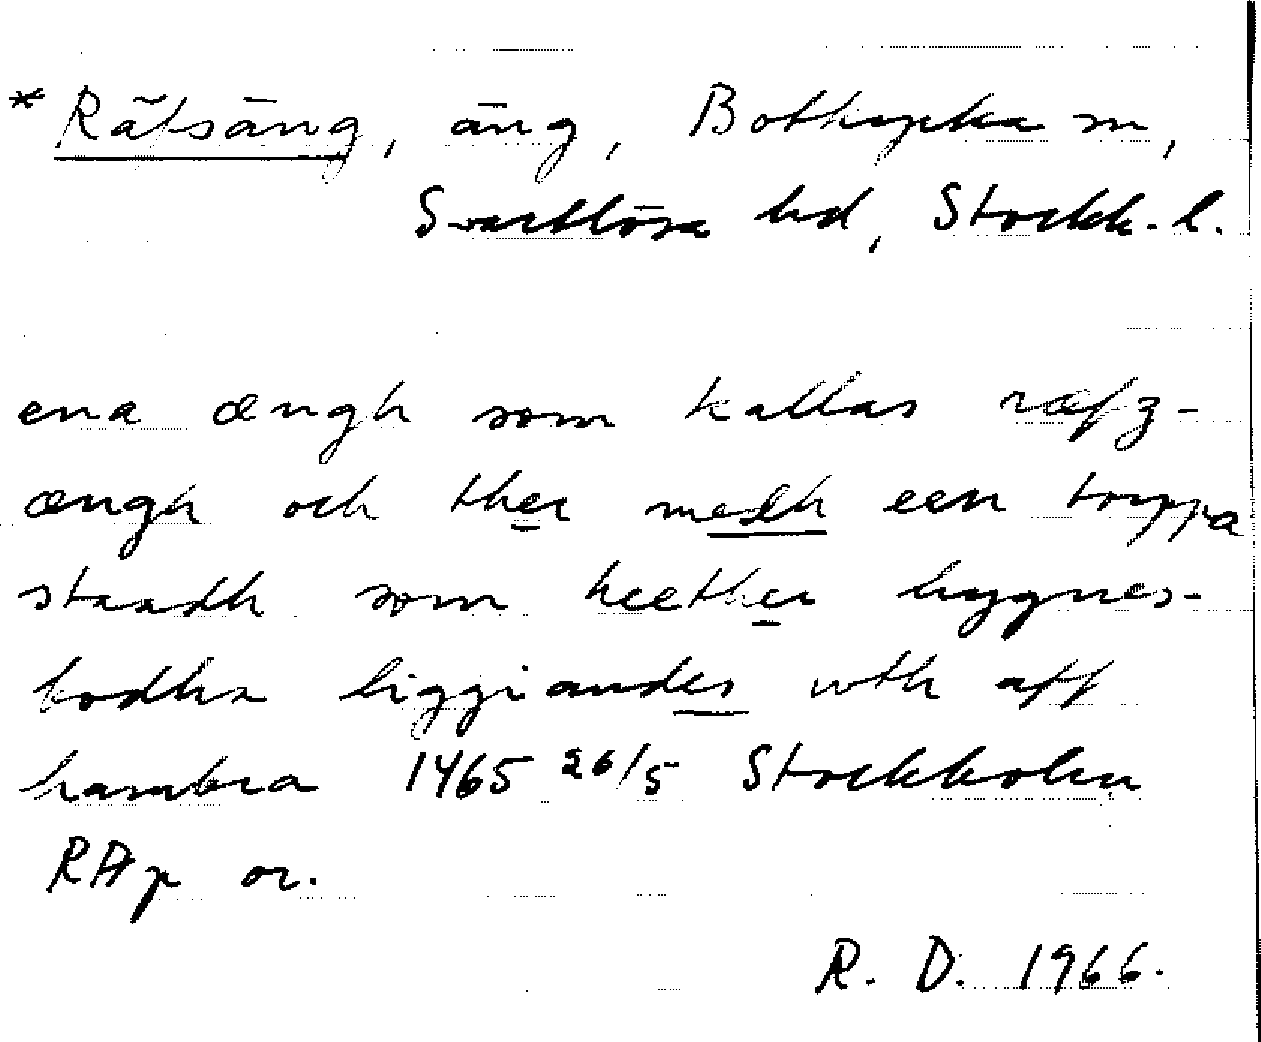 * Räfsäng, äng, Botkyrka sn,
Svartlösa hd, Stockh. l.
ena ængh som kallas ræfz-
ængh och ther medh een torppa
staadh som heether hygnes-
bodha liggiandes wth aff
hambra 1465 26/5 Stockholm
RAp or.
R. D. 1966.